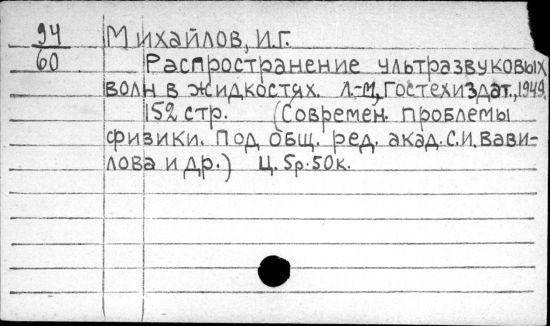 94 Михайлов, И.Г.
60 Распространение ультразвуковых
волн в жидкостях. Л.-М., Гостехиздат, 1949.
152 стр. (Современ. проблемы
физики. Под общ. ред. акад. С.И. Вави-
лова и др.) Ц. 5р. 50к.